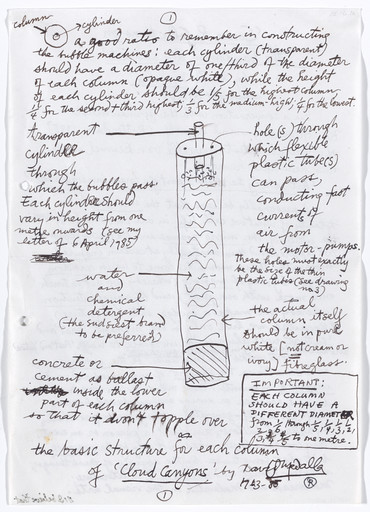 column
cylinder
1
a good ratio to remember in constructing
the bubble machines: each cylinder (transparent)
should have a diameter of one/third of the diameter
of each column (opaque white), while the height
of each cylinder should be 1/5 for the highest column,
1/4 for the second + third highest, 1/3 for the medium-high, 1/2 for the lowest.
transparent
cylinder
through
which the bubbles pass
Each cylinder should
vary in height from one
metre onwards (see my
letter of 6 April 1985)
hole(s) through
which flexible
plastic tube(s)
can pass,
conducting fast
currents of
air from
the motor-pumps.
These holes must exactly
be the size of the thin
plastic tubes (see drawing
no. 3)
water
and
chemical
detergent
(the sudsiest brand
to be preferred)
the actual
column itself
should be in pure
white (not cream or
ivory) fibreglass.
concrete or
cement as ballast
inside the lower
part of each column
so that it don't topple over
IMPORTANT:
EACH COLUMN
SHOULD HAVE A
DIFFERENT DIAMETER
from
through
to one metre.
the basic structure for each column
of 'Cloud Canyons' by David Medalla
1
R